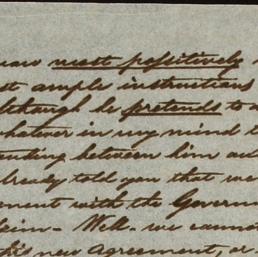 now most possitively
st ample instructions
lthough he pretends to a
whatever in my mind t
ending between him an
lready told you that we
ment with the Governm
him - Well - we cannot
his new Agreement, or